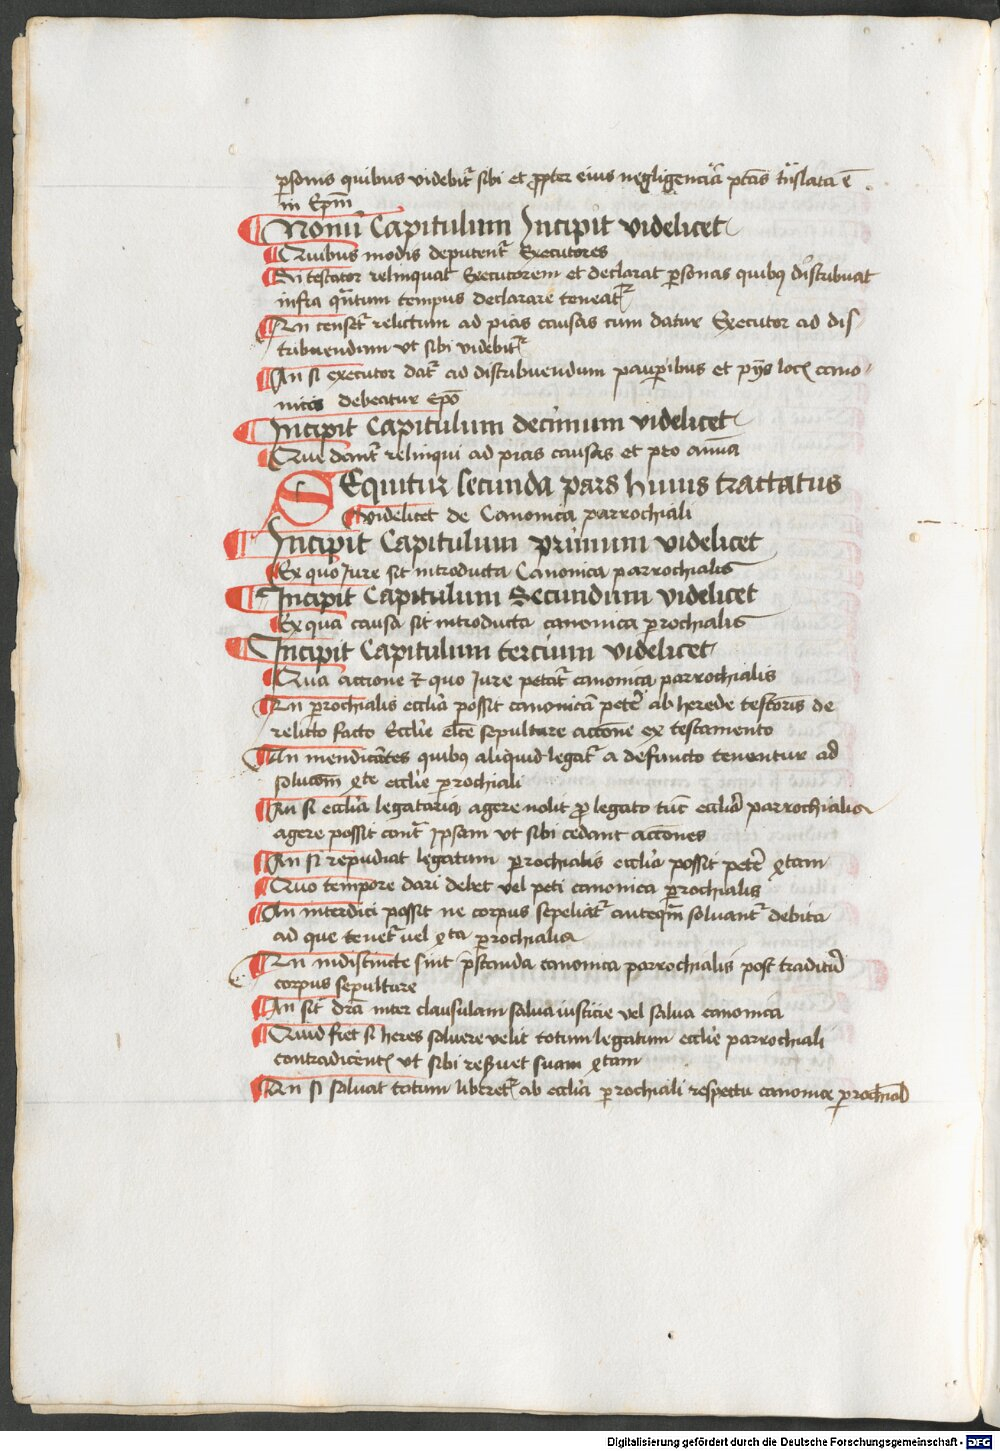 personis quibus videbitᷣ sibi et propter eius negligenciā ptās trāslata ē
in Epm̄
Nonū Capitulum Incipit videlicet
Quibus modis deputentᷣ Executores
Si testator relinquat Executorem et declarat personas quibꝰ distribuat
infra quantum tempus declarare teneatᷣ
An censetᷣ relictum ad pias causas cum datur Executor ad dis
tribuendum ut sibi videbitᷣ
An si executor datᷣ ad distribuendum pauperibus et pijs locis cano
nica debeatur Epo
Incipit Capitulum decimum videlicet
Que dicantᷣ relinqui ad pias causas et pro anima
SEquitur secunda pars huius tractatus
videlicet de Canonica parrochiali
Incipit Capitulum primum videlicet
Ex quo Jure sit introducta Canonica parrochialis
Incipit Capitulum Secundum videlicet
Ex qua causa sit introducta canonica ꝑrochialis
Incipit Capitulum tercium videlicet
Qua accione et quo Jure petatᷣ canonica parrochialis
An ꝑrochialis ecclīa possit canonicā petere ab herede testatoris de
relicto facto Ecclīe electe sepulture accōne ex testamento
An mendicātes quibꝰ aliquid legatᷣ a defuncto tenentur ad
solucōem q̄rte ecclīe ꝑrochiali
An si ecclīa legataria agere nolit pro legato tūc ecclīa parrochialis
agere possit contra ipsam ut sibi cedant acciones
An si repudiat legatum ꝑrochialis ecclīa possit petere q̄rtam
Quo tempore dari debet vel peti canonica ꝑrochialis
An interdici possit ne corpus sepeliatᷣ anteqm̄ soluantᷣ debita
ad que tenetᷣ vel q̄rta ꝑrochialis
An indistincte sint prestanda canonica parrochialis post traditū
corpus sepulture
An sit dr̄a inter clausulam salua iusticie vel salua canonica
Quid fiet si heres soluere velit totum legatum ecclīe parrochiali
contradicente ut sibi reseruet suam q̄rtam
An si soluat totum liberetᷣ ab ecclīa ꝑrochiali respectu canonice ꝑrochialis
Digitalisierung gefördert durch die Deutsche Forschungsgemeinschaft - DFG